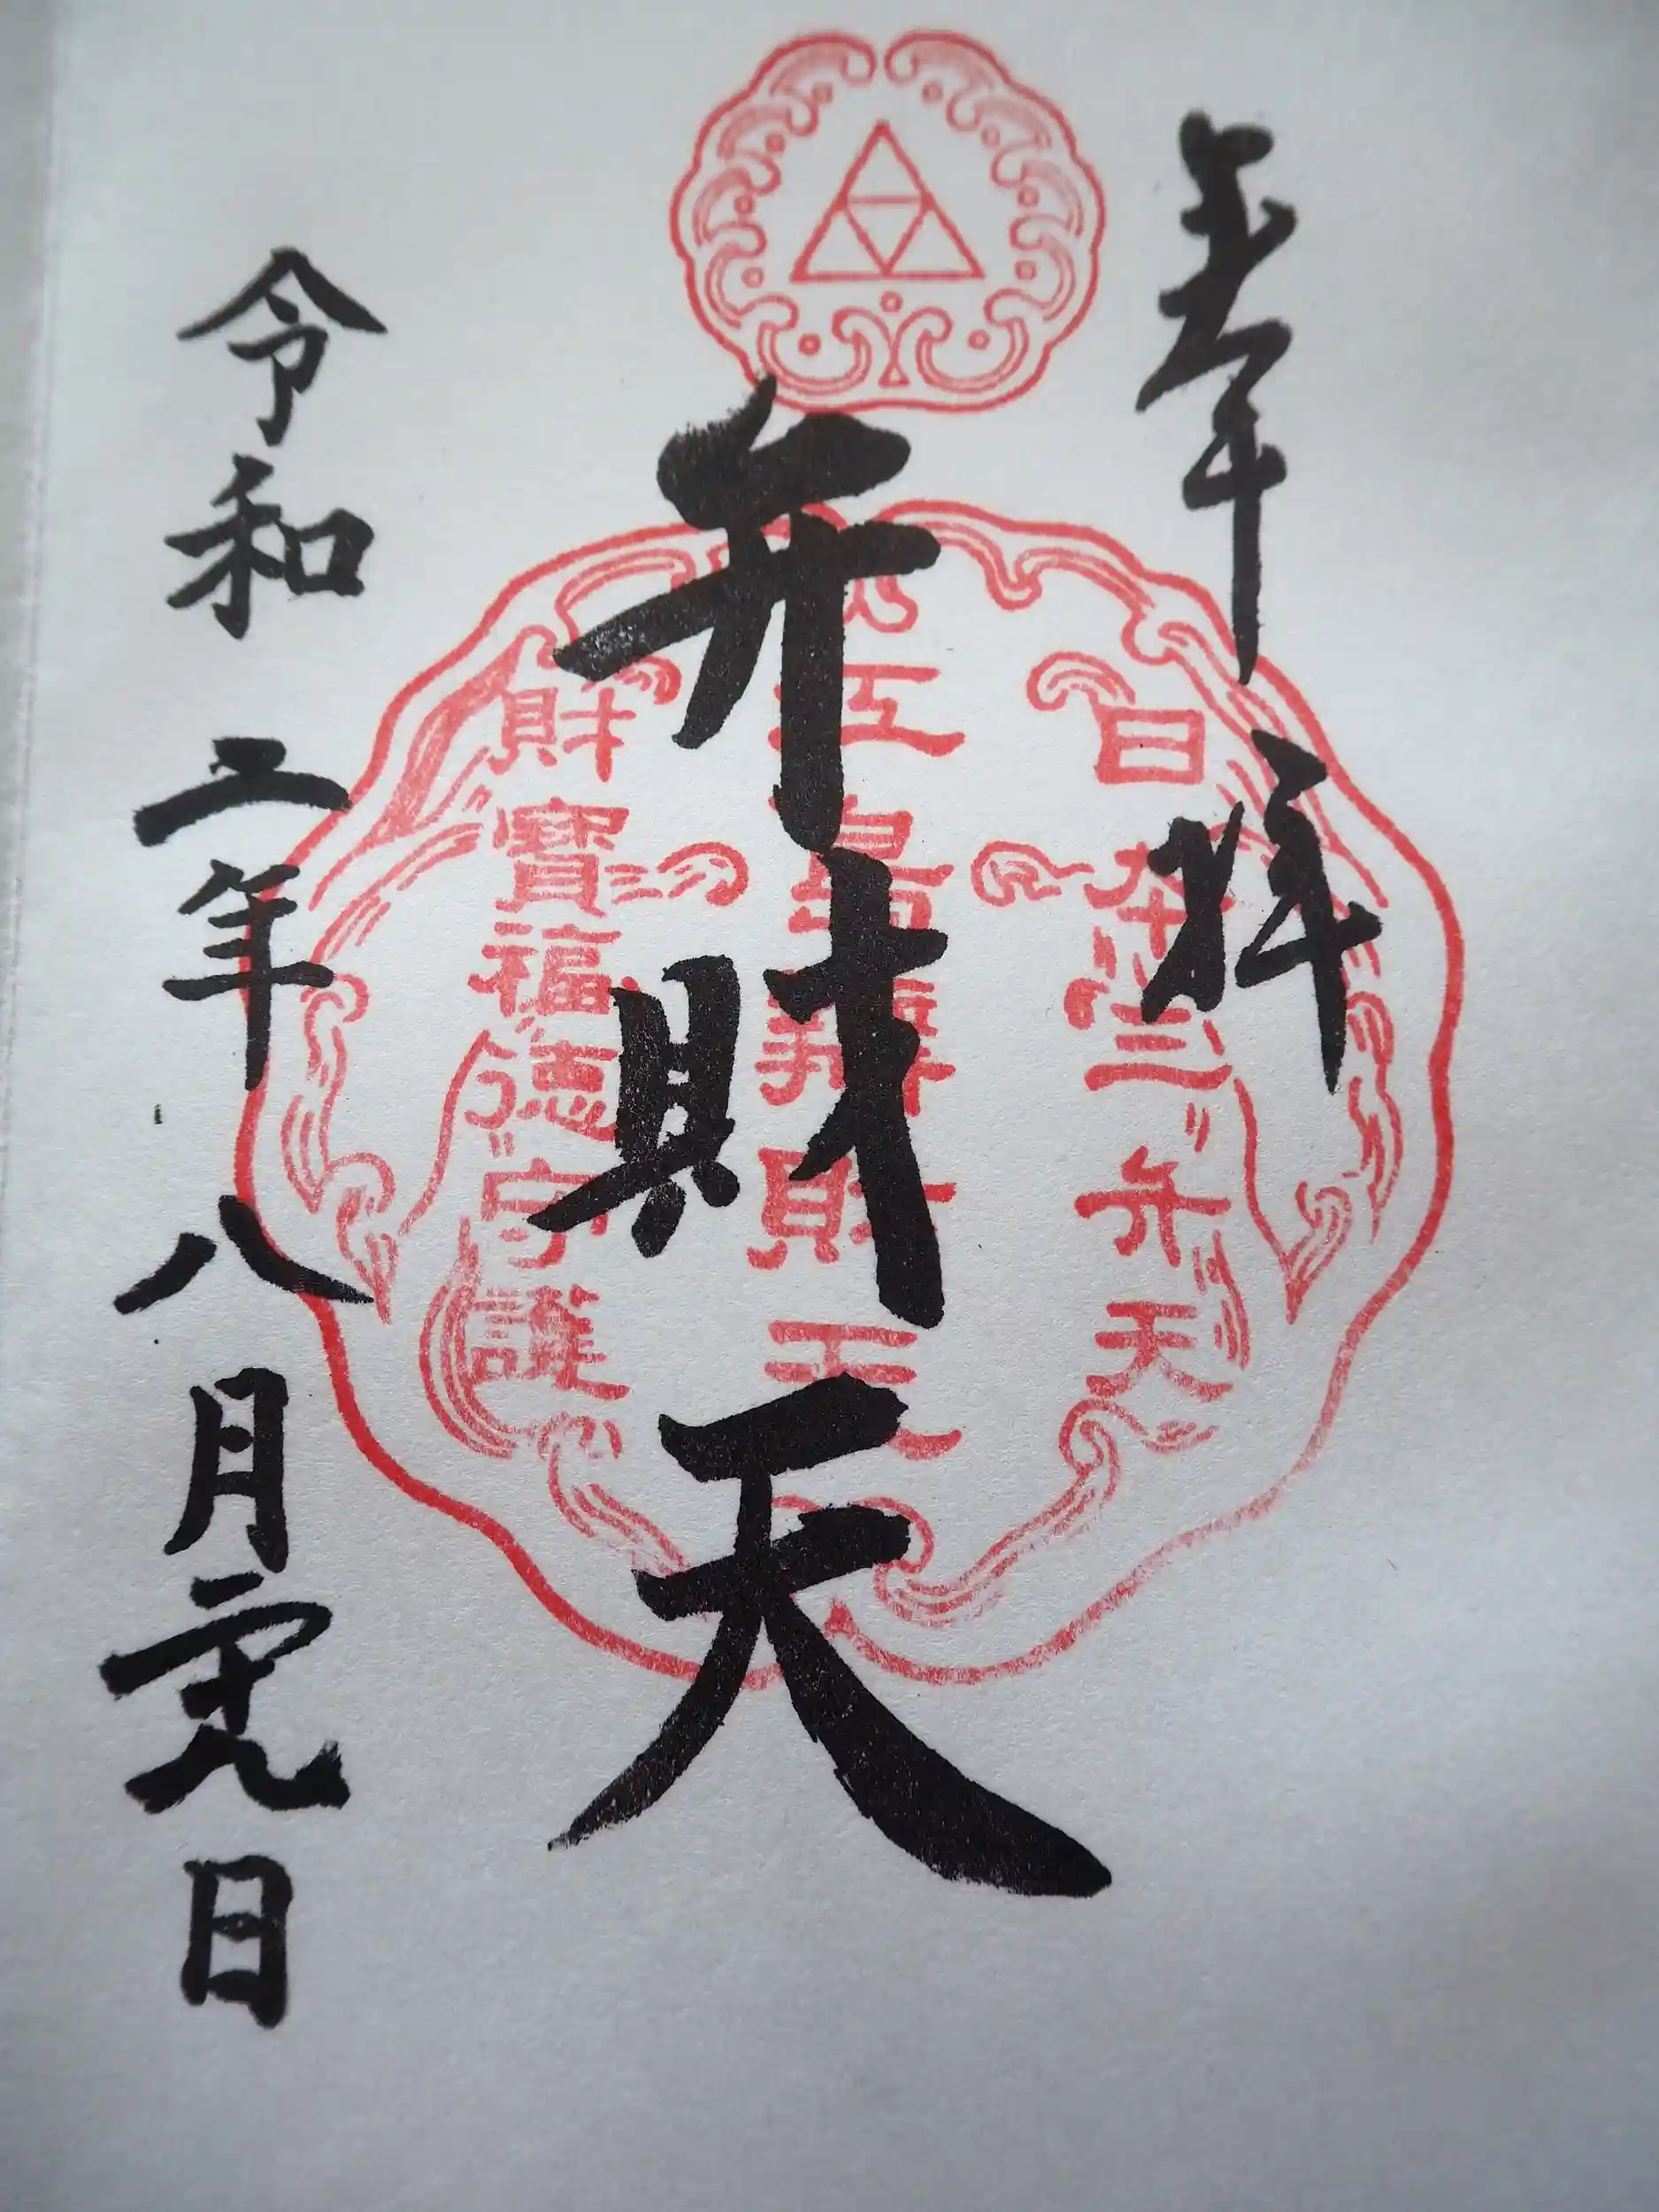 奉拝
日本三弁天
弁財天
江 財天
財寶福徳守護
令和二年八月 日